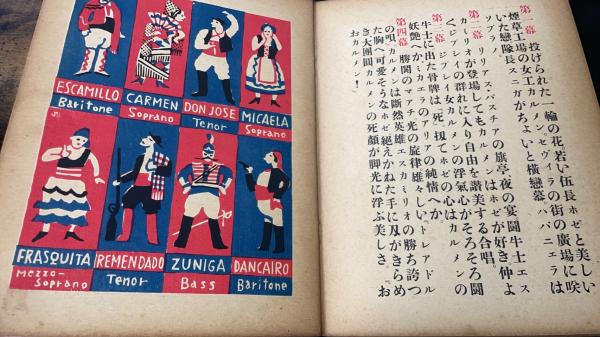 ESCAMILLO
Baritone
CARMEN
Soprano
DON JOSE
Tenor
MICAELA
Soprano
FRASQUITA
Mezzo-
Soprano
REMENDADO
Tenor
ZUNIGA
Bass
DANCAIRO
Baritone
第一幕 投げられた一輪の花、若い伍長ホゼと美しい
煙草工場の女工カルメン、セヴィラの街の廣場に咲
いた戀、隊長スニガがちょいと横戀慕、ハバニエラは
ソプラノ。
第二幕 リリアス・パスチアの旗亭、夜の宴、闘牛士エス
カミーリオが登場してもカルメンはホゼが好き、仲よ
くジプシイの群れに入り自由を讃美する合唱。
第三幕 ジプシイ女カルメンの浮氣心がそろそろ闘
牛士に、出た骨牌は「死」、扨てホゼの心はカルメンの
妖艶へか、ミカエラのアリアの純情へか。
第四幕 勝閧のマアチ、光の旋律、雄々しいトレアドル
の唄、カルメンは斷然英雄エスカミリオの勝ち誇つ
た胸へ、可愛そうなホゼ、絶えかねた手に刄がきらめ
き大團圓、カルメンの死顔が脚光に浮ぶ美しさ、お
おカルメン!